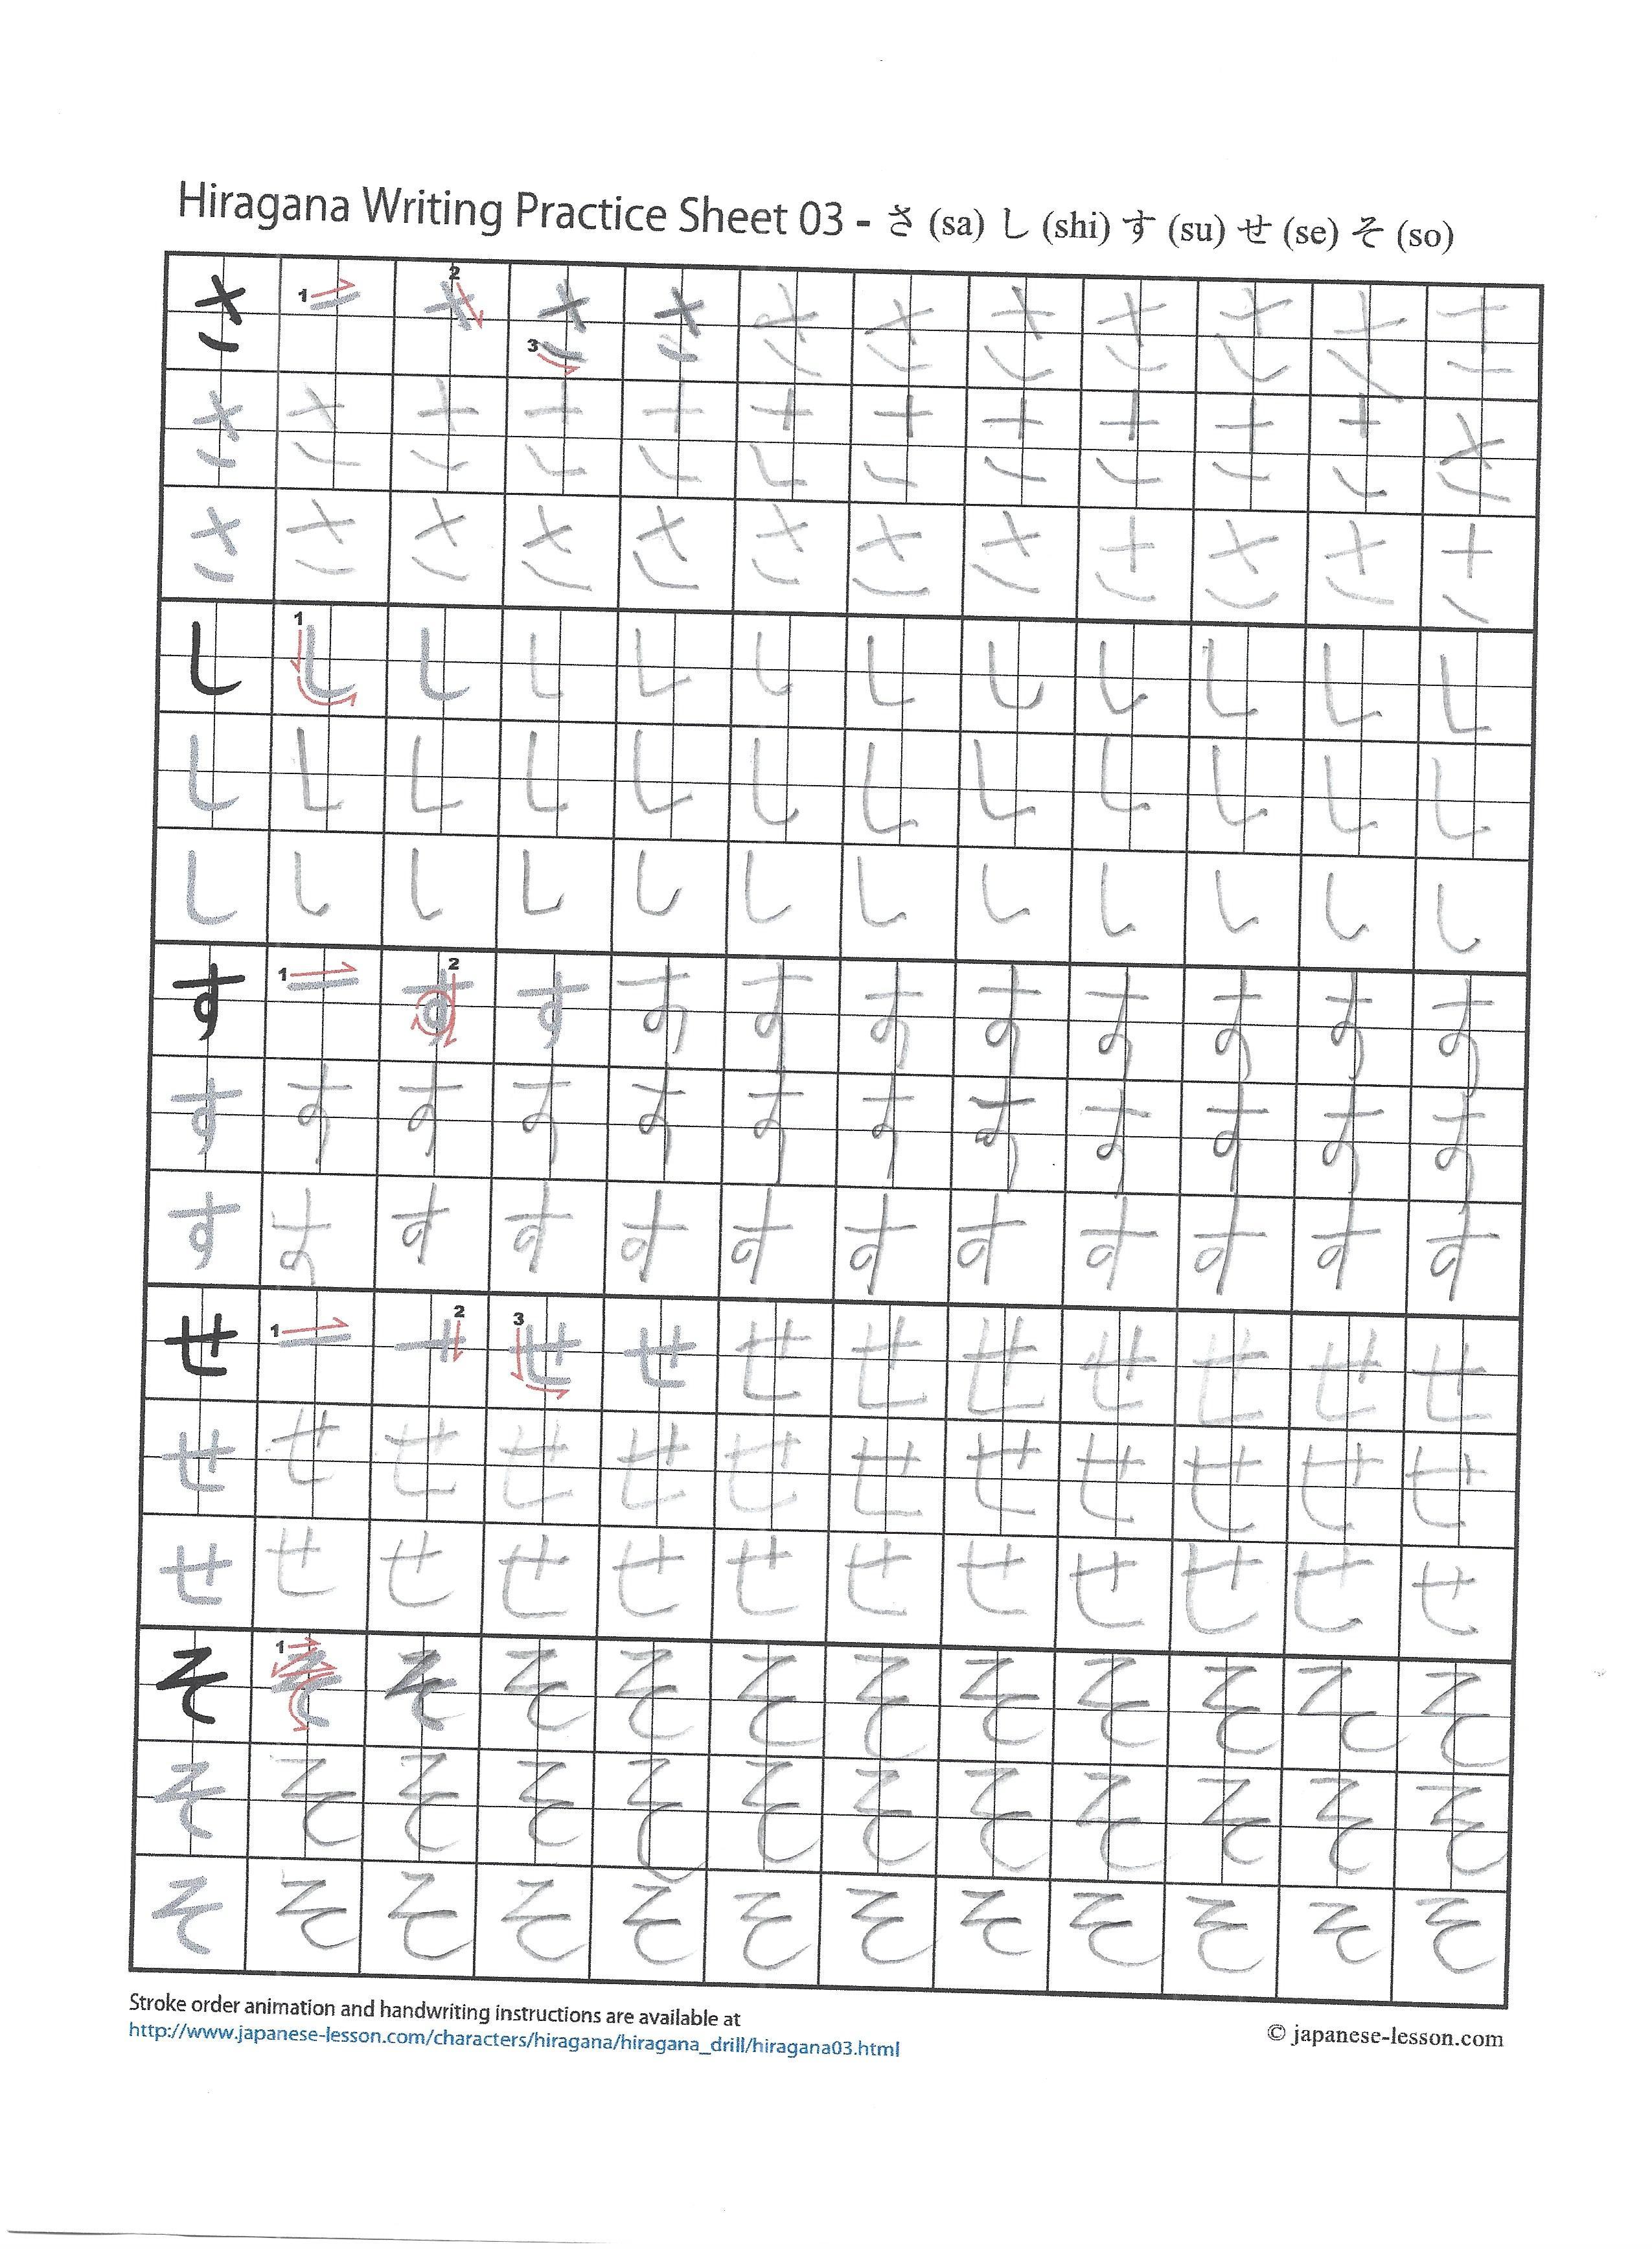 Hiragana Writing Practice Sheet 03 - さ (sa) し (shi) す (su) せ (se) そ (so)
さ 1 2 さ 3 さ さ さ さ さ さ さ さ
さ さ さ さ さ さ さ さ さ さ さ さ
さ さ さ さ さ さ さ さ さ さ さ さ
し 1 し し し し し し し し し し し
し し し し し し し し し し し し
し し し し し し し し し し し し
す 1 2 す す す す す す す す す す
す す す す す す す す す す す す
す す す す す す す す す す す す
せ 1 2 3 せ せ せ せ せ せ せ せ せ
せ せ せ せ せ せ せ せ せ せ せ せ
せ せ せ せ せ せ せ せ せ せ せ せ
そ 1 そ そ そ そ そ そ そ そ そ そ そ
そ そ そ そ そ そ そ そ そ そ そ そ
そ そ そ そ そ そ そ そ そ そ そ そ
Stroke order animation and handwriting instructions are available at
http://www.japanese-lesson.com/characters/hiragana/hiragana_drill/hiragana03.html
© japanese-lesson.com